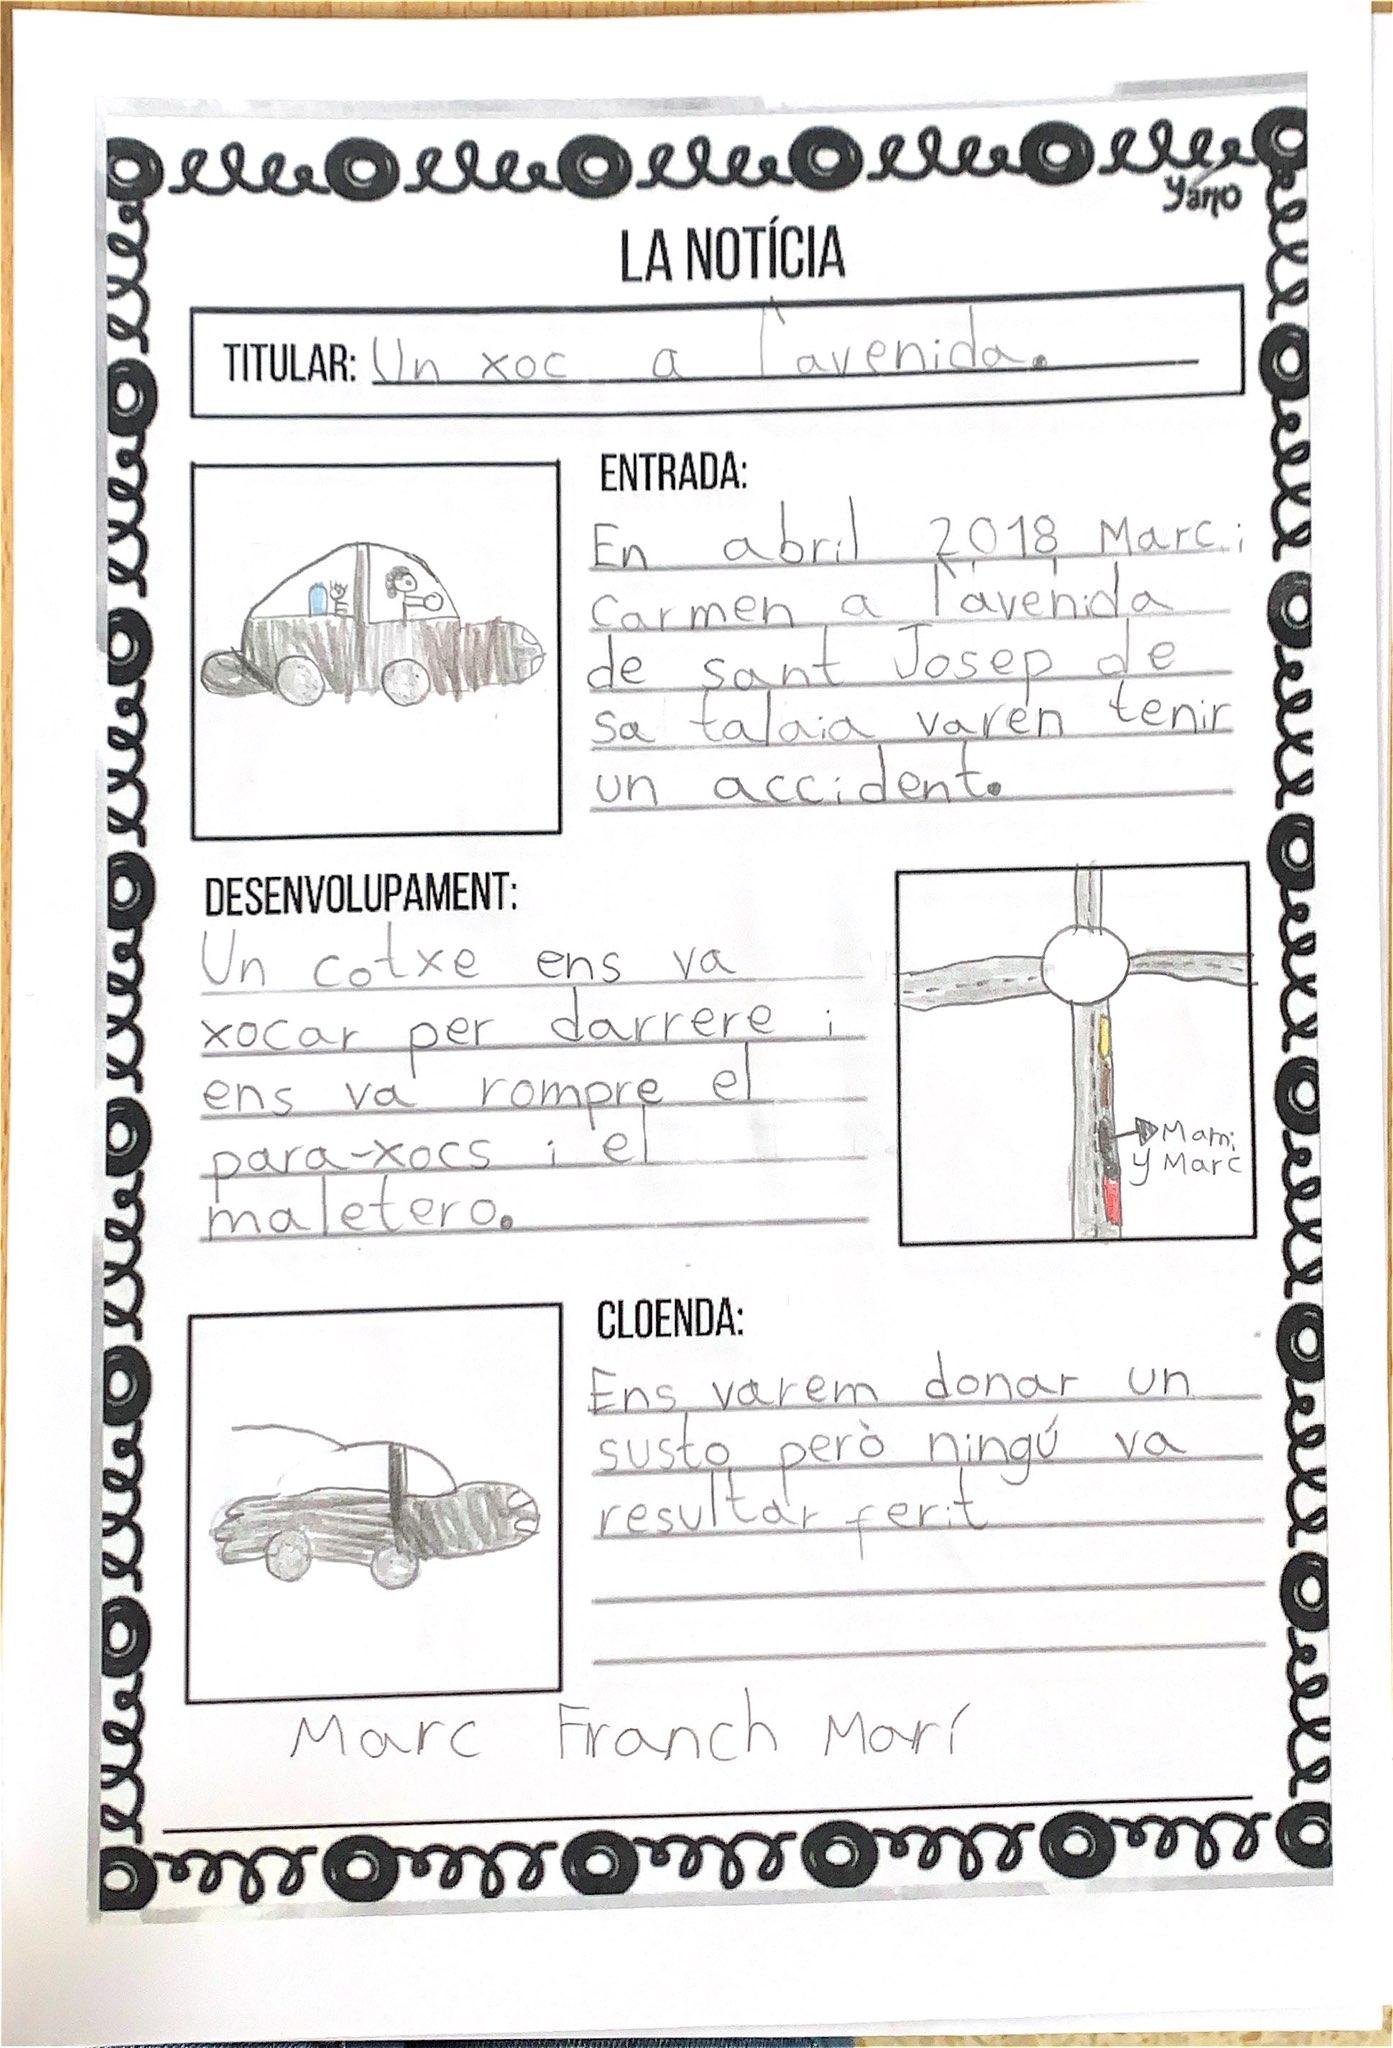 yarro
LA NOTÍCIA
TITULAR: Un xoc a l'avenida.
ENTRADA:
En abril 2018 Marc i
Carmen a l'avenida
de sant Josep de
sa talaia varen tenir
un accident.
DESENVOLUPAMENT:
Un cotxe ens va
xocar per darrere i
ens va rompre el
para-xocs i el
maletero.
Mami
y Marc
CLOENDA:
Ens varem donar un
susto però ningú va
resultar ferit
Marc Franch Marí